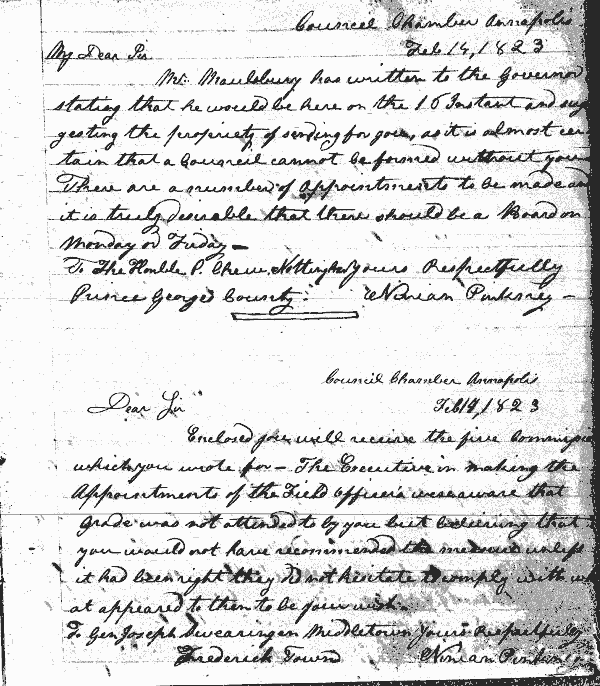 Council Chamber Annapolis
Feb 14, 1823
My Dear Sir
Mr. Maulsbury has written to the Governor
stating that he would be here on the 16 Instant and sug
gesting the propriety of sending for you, as it is almost cer
tain that a Council cannot be formed without you
There are a number of appointments to be made and
it is truly desirable that there should be a Board on
Monday or Friday —
To The Honble P. Chew, Nottingham yours Respectfully
Prince Georges County. Ninian Pinkney —
Council Chamber Annapolis
Feb 14, 1823
Dear Sir
Enclosed you will receive the five Commissio
which you wrote for — The Executive in making the
Appointments of the Field officers were aware that
grade was not attended to by you but believing that
you would not have recommended the measure unless
it had been right they did not hesitate to comply with wh
at appeared to them to be your wish.
To Gen Joseph Swearingen Middletown yours Respectfully
Frederick Town Ninian Pinkney